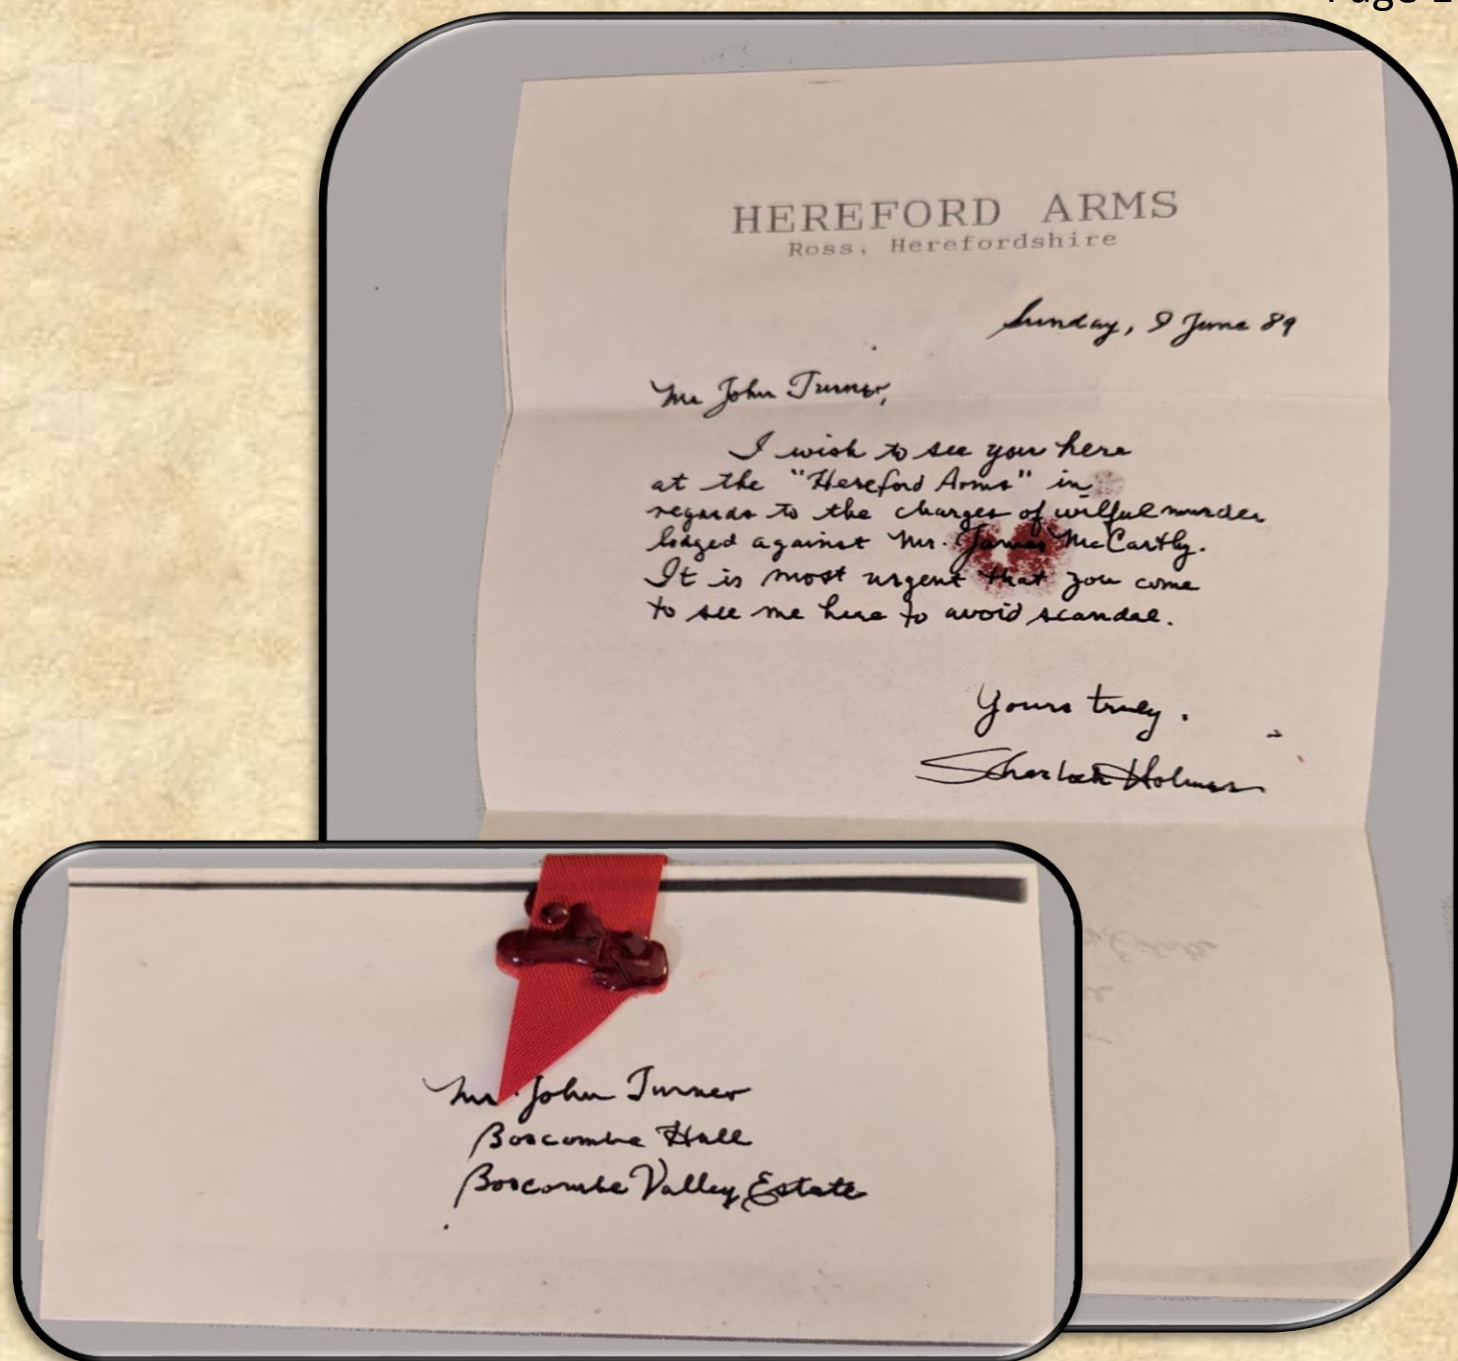 Page
HEREFORD ARMS
Ross, Herefordshire
Sunday, 9 June 89
Mr John Turner,
I wish to see you here
at the "Hereford Arms" in
regards to the charges of wilful murder
lodged against Mr. James McCarthy.
It is most urgent that you come
to see me here to avoid scandal.
Yours truly.
Sherlock Holmes
Mr John Turner
Boscombe Hall
Boscombe Valley Estate